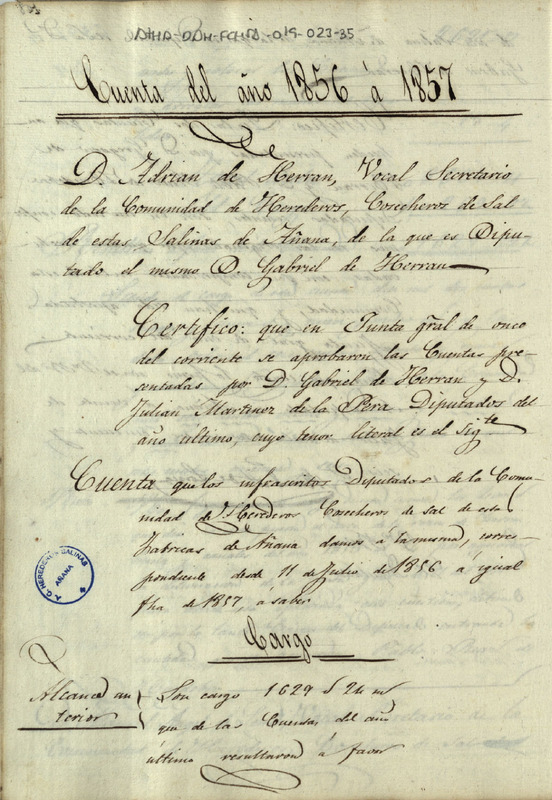 ATHA-DAH-FCHA-019-023-35
Cuenta del año 1856 á 1857
D. Adrian de Herran, Vocal Secretario
de la Comunidad de Herederos, Cosecheros de Sal
de estas Salinas de Añana, de la que es Dipu-
tado el mismo D. Gabriel de Herran
Certifico: que en Junta gral de once
del corriente se aprobaron las Cuentas pre-
sentadas por D. Gabriel de Herran y D.
Julian Martinez de la Pera Diputados del
año ultimo, cuyo tenor literal es el sigte
Cuenta que los infrascritos Diputados de la Comu-
nidad de Herederos Cosecheros de sal de esta
Fabricas de Añana damos á la misma, corres-
pondiente desde 11 de Julio de 1856 á igual
fha de 1857 á saber
Cargo
Alcance an
terior
Son cargo 1629 24 ms
que de las Cuentas del año
último resultaron a favor
A. G. HEREDEROS SALINAS
AÑANA